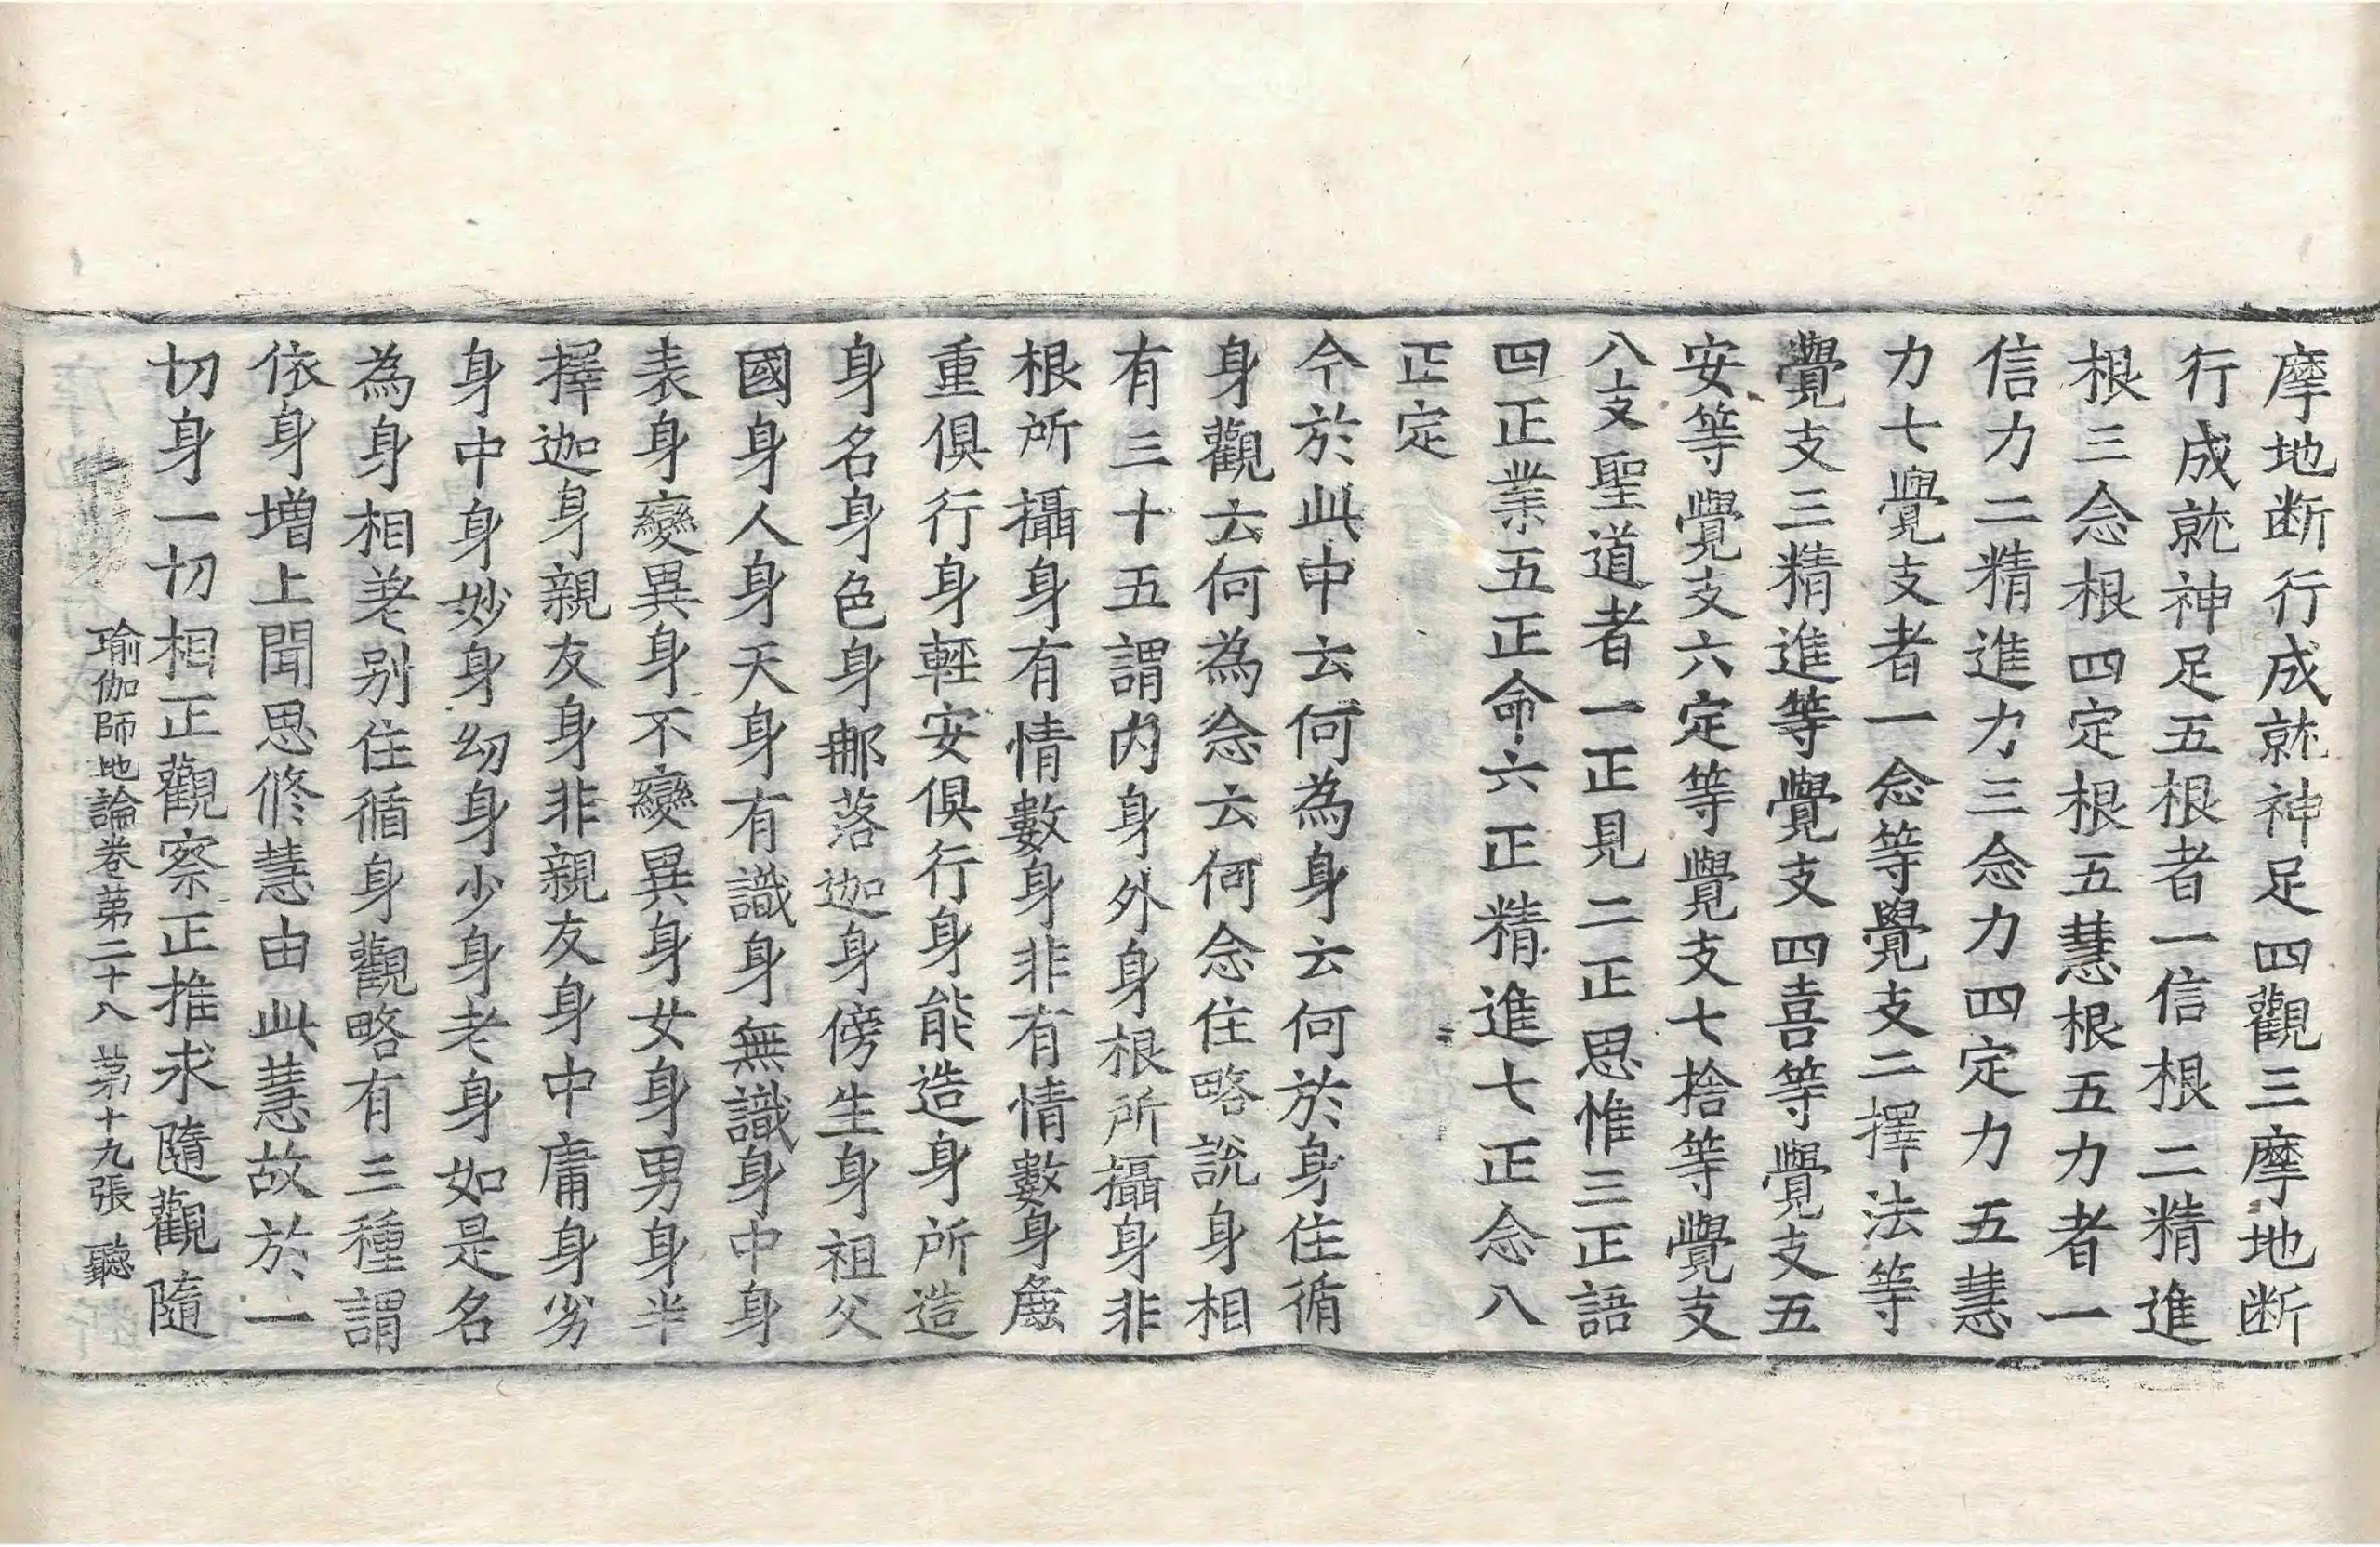 摩地断行成就神足四觀三摩地断
行成就神足五根者一信根二精進
根三念根四定根五慧根五力者一
信力二精進力三念力四定力五慧
力七覺支者一念等覺支二擇法等
覺支三精進等覺支四喜等覺支五
安等覺支六定等覺支七捨等覺支
八支聖道者一正見二正思惟三正語
四正業五正命六正精進七正念八
正定
今於此中云何為身云何於身住循
身觀云何為念云何念住略說身相
有三十五謂内身外身根所攝身非
根所攝身有情數身非有情數身麁
重俱行身輕安俱行身能造身所造
身名身色身那落迦身傍生身祖父
國身人身天身有識身無識身中身
表身變異身不變異身女身男身半
擇迦身親友身非親友身中庸身劣
身中身妙身幼身少身老身如是名
為身相差别住循身觀略有三種謂
依身增上聞思修慧由此慧故於一
切身一切相正觀察正推求隨觀隨
瑜伽師地論卷第二十八 第十九張 聽